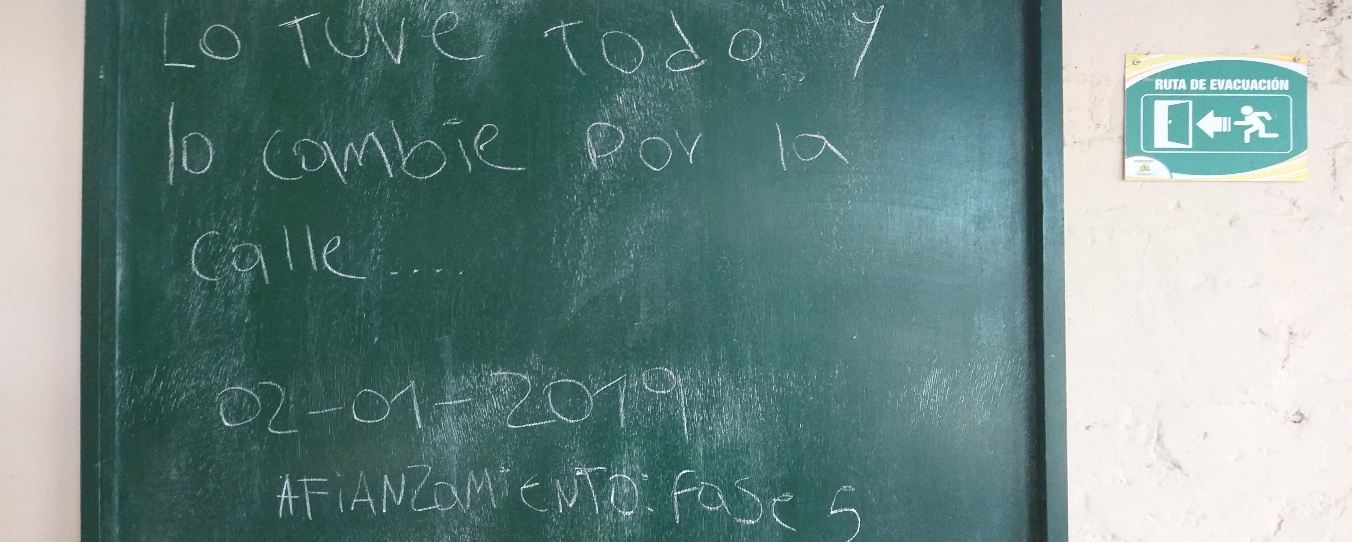 Lo TUVE Todo Y
lo cambie por la
calle....
02-01-2019
AFiANZaMiENTO: Fase 5
RUTA DE EVACUACIÓN